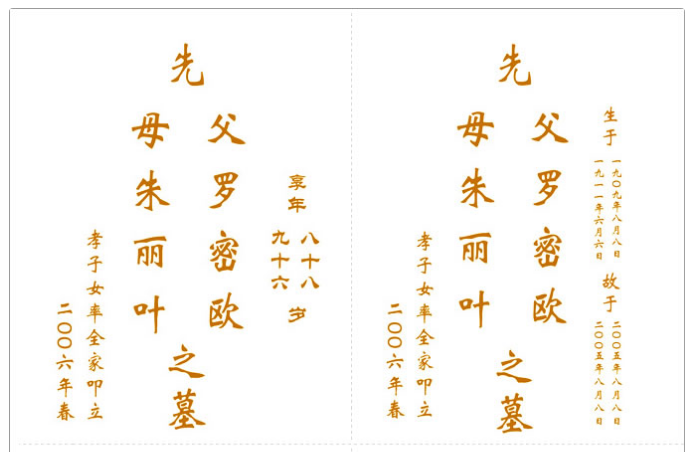 享年
八十八
九十六
岁
先
父罗密欧
母朱丽叶
之墓
孝子女率全家叩立
二〇〇六年春
生于
一九〇九年八月八日
一九一一年六月六日
故于
二〇〇五年八月八日
二〇〇五年八月八日
先
父罗密欧
母朱丽叶
之墓
孝子女率全家叩立
二〇〇六年春